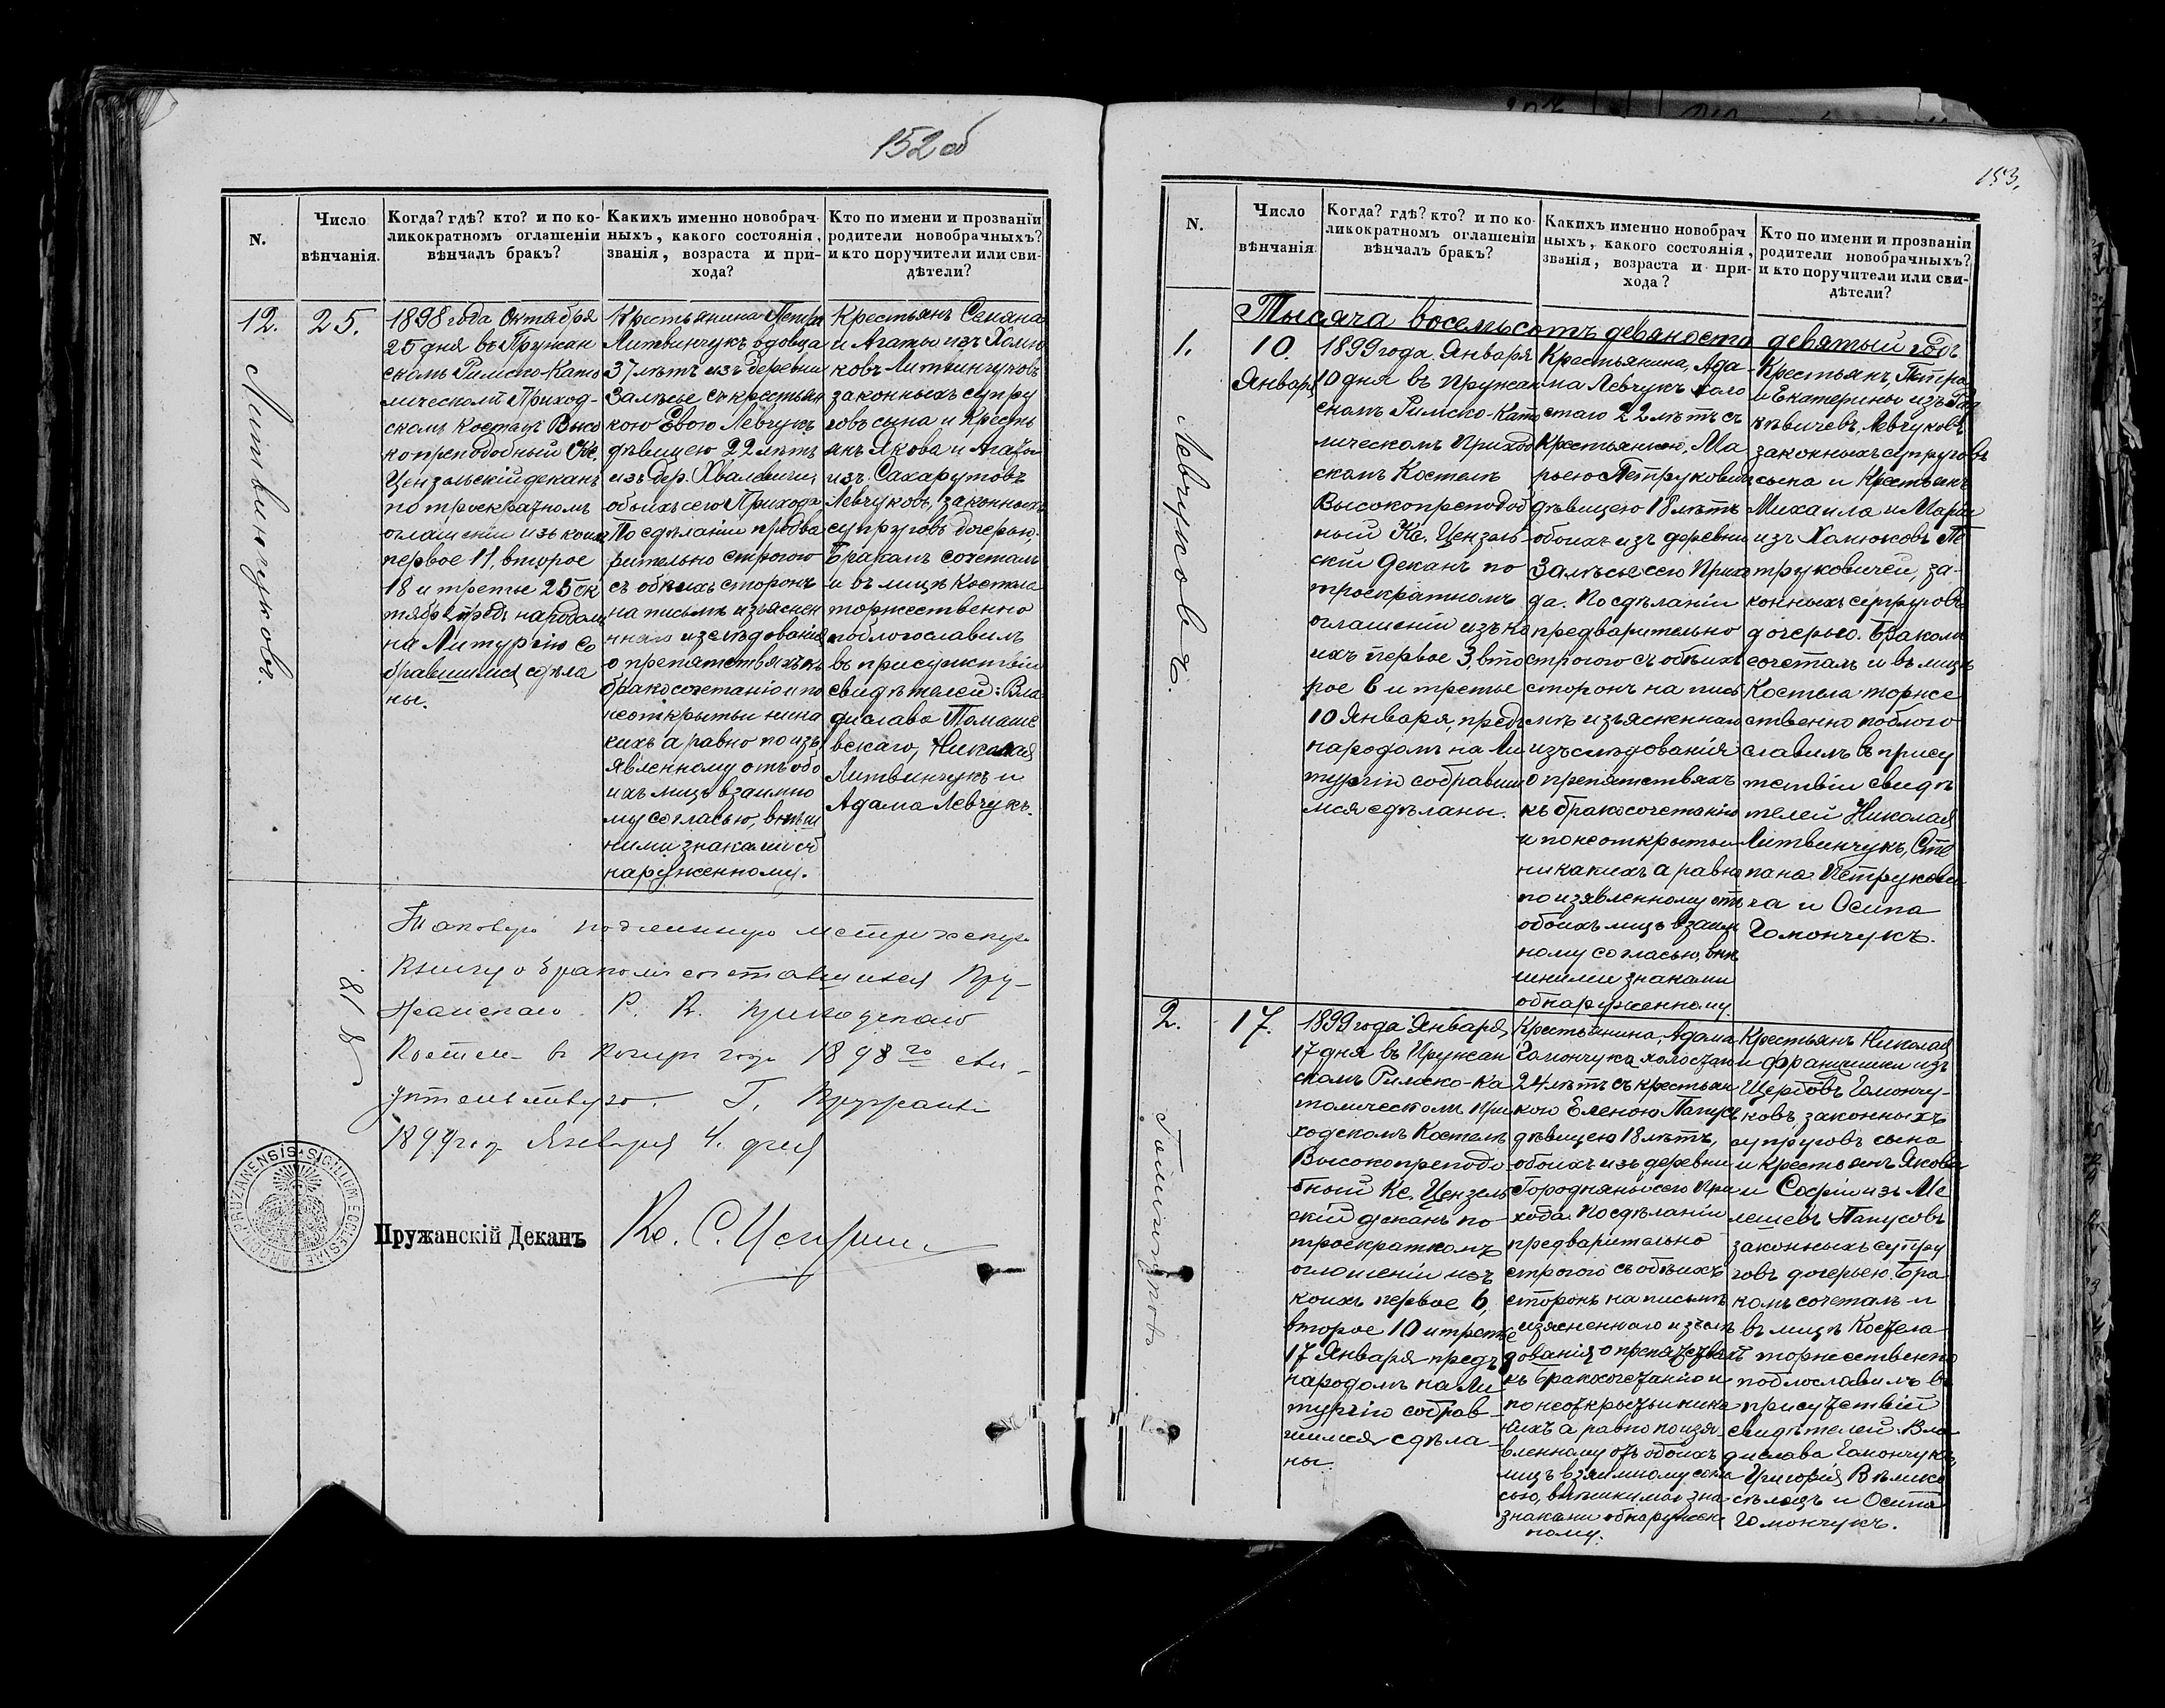 152 об
N.
Число
вѣнчанія.
Когда? гдѣ? кто? и по ко-
ликократномъ оглашеніи
вѣнчалъ бракъ?
Какихъ именно новобрач-
ныхъ, какого состоянія,
званія, возраста и при-
хода?
Кто по имени и прозваніи
родители новобрачныхъ?
и кто поручители или сви-
дѣтели?
12.
Литвинчуковъ.
25.
1898 года Октября
25 дня въ Пружан
скомъ Римско-Като
лическомъ Приход-
скомъ Костелѣ Высо
копреподобный Кс.
Цензельскій деканъ
по троекратномъ
оглашеніи изъ коихъ
первое 11, второе
18 и третье 25 Ок
тября предъ народомъ
на Литургію со
бравшимся сдѣла
ны.
Крестьянина
Литвинчукъ вдовца
37 лѣтъ изъ деревни
Залѣсье съ крестьян
кою Евою Левчукъ
дѣвицею 22 лѣтъ
изъ дер. Хвалевичи,
обоихъ сего Прихода
По сдѣланіи предва
рительно строгого
съ обѣихъ сторонъ
на письмѣ изъяснен
ннаго изслѣдованія
о препятствіяхъ къ
бракосочетанію и по
неоткрытіи ника
кихъ а равно по изъ
явленному отъ обо
ихъ лицъ взаимно
му согласью, внѣш
ними знаками об
наруженному.
Крестьянъ
и Агаты изъ Холю
ковъ Литвинчуковъ
законныхъ супру
говъ сына и Кресть
янъ Якова и Агаты
изъ Сахарутовъ
Левчуковъ, законныхъ
супруговъ дочерью,
Бракомъ сочеталъ
и въ лицѣ Костела
торжественно
поблогославилъ
въ присутствіи
свидѣтелей: Вла
дислава Томаше
вскаго, Николая
Литвинчукъ и
Адама Левчукъ.
Таковую подлинную метрическую
книгу о бракомъ сочетавшихся Пру-
жанскаго Р. К. приходскаго
Костела въ концѣ года 1898 го сви-
дѣтельствую. Г. Пружаны
1899 год Января 4. дня
Пружанскій Деканъ
Кс. С.
PRUZANENSIS SIGILLUM ECCLESIAE PAROCH
153.
N.
Число
вѣнчанія
Когда? гдѣ? кто? и по ко-
ликократномъ оглашеніи
вѣнчалъ бракъ?
Какихъ именно новобрач
ныхъ, какого состоянія,
званія, возраста и при-
хода?
Кто по имени и прозваніи
родители новобрачныхъ?
и кто поручители или сви-
дѣтели?
Тысяча восемьсотъ девяносто девятый годъ
1.
Левчуковъ.
10.
Января
1899 года Января
10 дня въ Пружан
скомъ Римско-Като
лическомъ Приход
скомъ Костелѣ
Высокопреподоб
ный Кс. Цензель-
скій деканъ по
троекратномъ
оглашеніи изъ ко
ихъ первое 3, вто
рое 6 и третье
10 Января, предъ
народомъ на Ли
тургію собравши
мся сдѣланы.
Крестьянина, Ада-
ма Левчукъ холо
стаго 22 лѣтъ съ
Крестьянкою, Ма
рьею Петруковичъ
дѣвицею 18 лѣтъ
обоихъ изъ деревни
Залѣсье сего Прихо
да. По сдѣланіи
предварительно
строгого съ обѣихъ
сторонъ на пись
мѣ изъясненнаго
изъслѣдованія
о препятствіяхъ
къ бракосочетанію
и по неоткрытіи
никакихъ а равно
по изявленному отъ
обоихъ лицъ взаим
ному согласью, внѣ
шними знаками
обнаруженному.
Крестьянъ, Петра
и Екатерины изъ
Левчуковъ
законныхъ супруговъ
сына и Крестьянъ
Михаила и Маріи
изъ Холюковъ Пе
труковичей, за-
конныхъ супруговъ
дочерью. Бракомъ
сочеталъ и въ лицѣ
Костела торже
ственно поблого
славилъ въ прису
тствіи свидѣ
телей Николая
Литвинчукъ, Сте
пана Петрукови
ча и Осипа
Гомончукъ.
2.
Гомончуковъ
17.
1899 года Января
17 дня въ Пружан
скомъ Римско-Ка
толическомъ При
ходскомъ Костелѣ
Высокопреподо
бный Кс. Цензель
скій деканъ по-
троекратномъ
оглашеніи изъ
коихъ первое 6,
второе 10 и третье
17 Января предъ
народомъ на Ли
тургію собрав-
шимся сдѣла-
ны.
Крестьянина, Адама
Гомончука холостаго
24 лѣтъ съ крестьян
кою Еленою Папусъ
дѣвицею 18 лѣтъ,
обоихъ изъ деревни
Городняны сего При
хода. По сдѣланіи
предварительно
строгого съ обѣихъ
сторонъ на письмѣ
изясненнаго изъслѣ
дованія о препятствіяхъ
къ бракосочетанію и
по неоткрытіи ника
кихъ а равно по изя-
вленному отъ обоихъ
лицъ взаимному согла
сью, внѣшними зна
знаками обнаружен
ному.
Крестьянъ Николая
и Францишки изъ
Щербовъ Гомончу-
ковъ, законныхъ
супруговъ сына
и крестьянъ Якова
и Софіи изъ Ме
лешевъ Папусовъ
законныхъ супру
говъ дочерью. Бра
комъ сочеталъ и
въ лицѣ Костела
торжественно
поблославилъ въ
присутствіи
свидѣтелей. Вла
дислава Гомончука,
Григорія Велико
селецъ и Осипа
Гомончукъ.